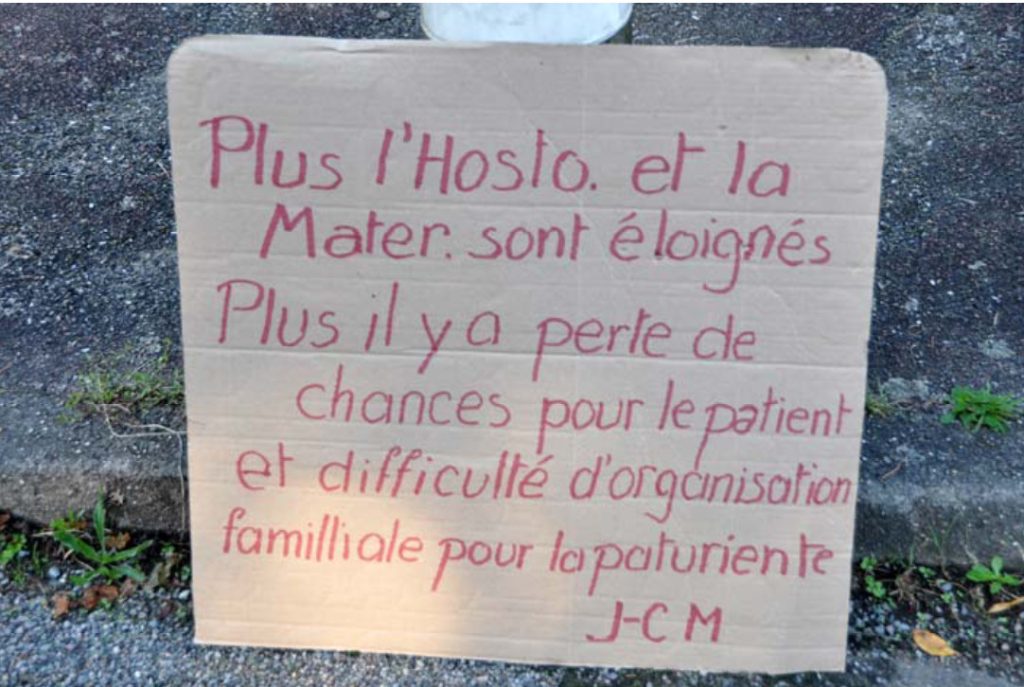 Plus l'Hosto. et la
Mater. sont éloignés
Plus il y a perte de
chances pour le patient
et difficulté d'organisation
familliale pour la paturiente
J-C M